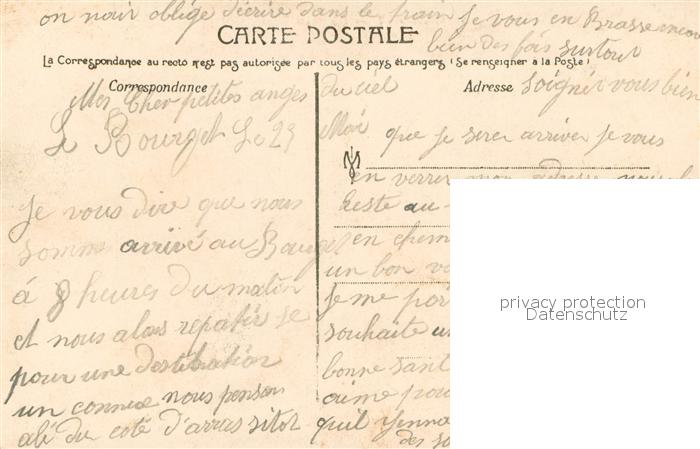 on nous oblige d'écrire dans le train je vous en Brasse encore
bien des fois surtout
CARTE POSTALE
La Correspondance au recto n'est pas autorisée par tous les pays étrangers (Se renseigner à la Poste)
Correspondance
Adresse
soignér vous bien
Mes Cher petites anges du ciel
Le Bourget Le 23
que je serer arriver je vous
en verrer mon adresse
Je vous dire que nous
somme arrivé au Bourget
à 8 heures du matin
et nous alons repartir se
pour une destination
un connue nous pensons
alé du coté d'arras sitot
Reste au
en chem
un bon vo
je me por
souhaite un
bonne sant
aime pou
qu'il yenna
des so
privacy protection
Datenschutz